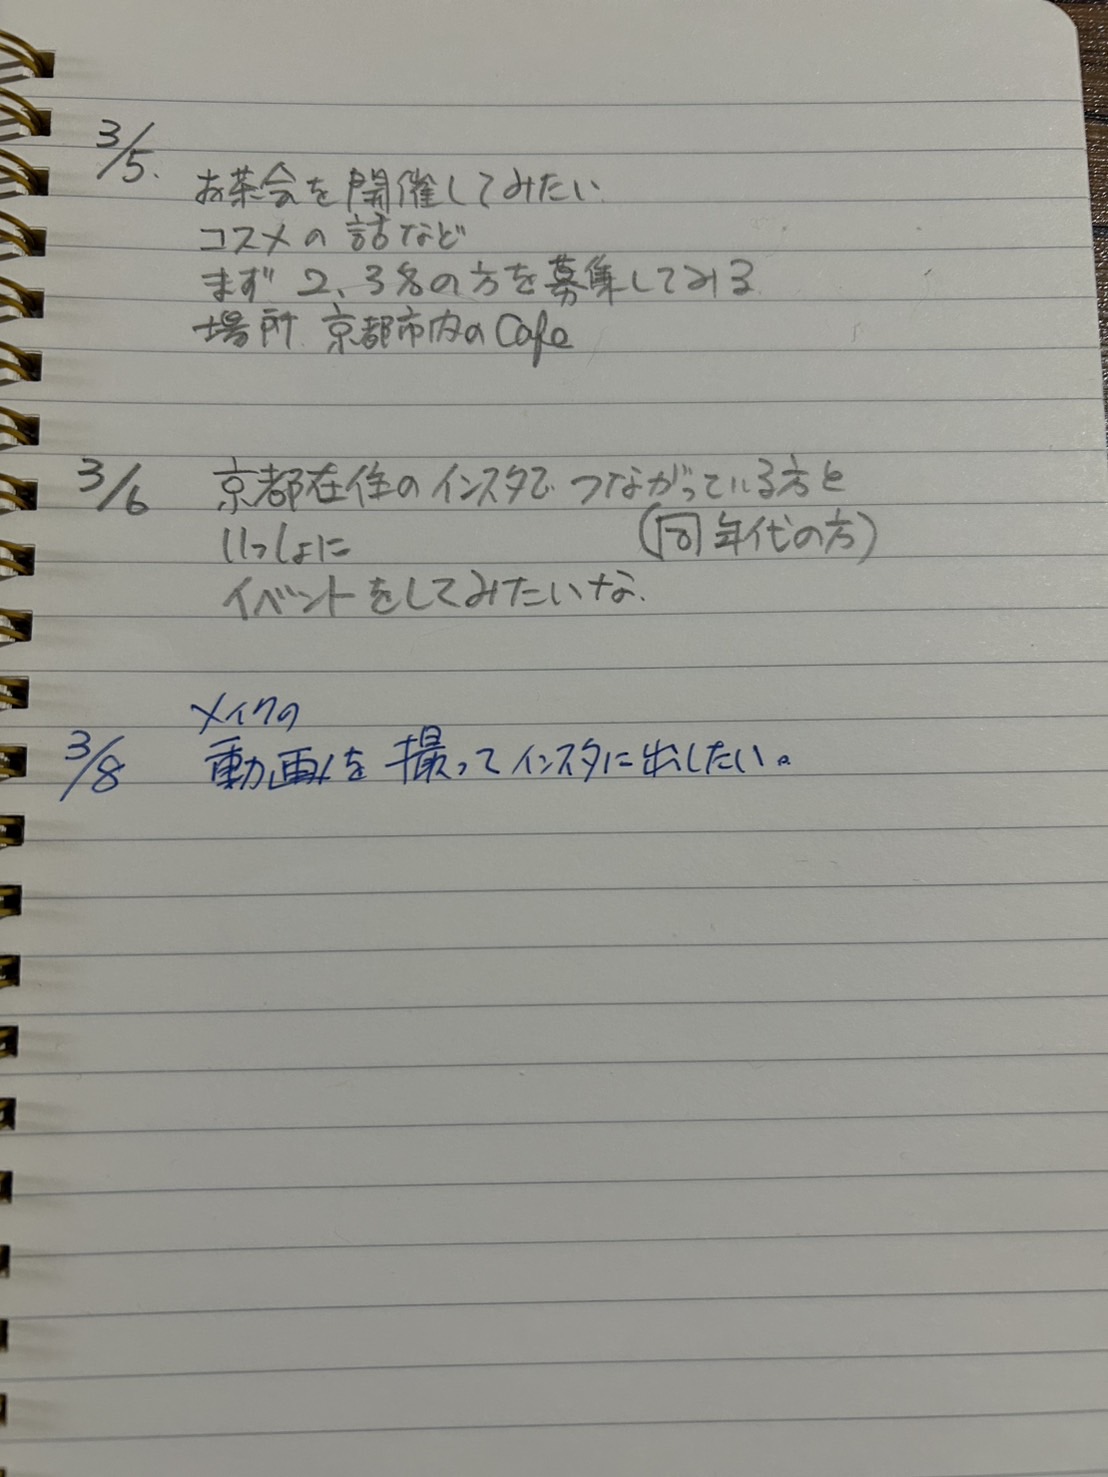 3/5.
お茶会を開催してみたい
コスメの話など
まず 2、3名の方を募集してみる
場所 京都市内のCafe
3/6 京都在住のインスタで つながっている方と
いっしょに (同年代の方)
イベントをしてみたいな.
メイクの
3/8 動画を撮ってインスタに出したい。